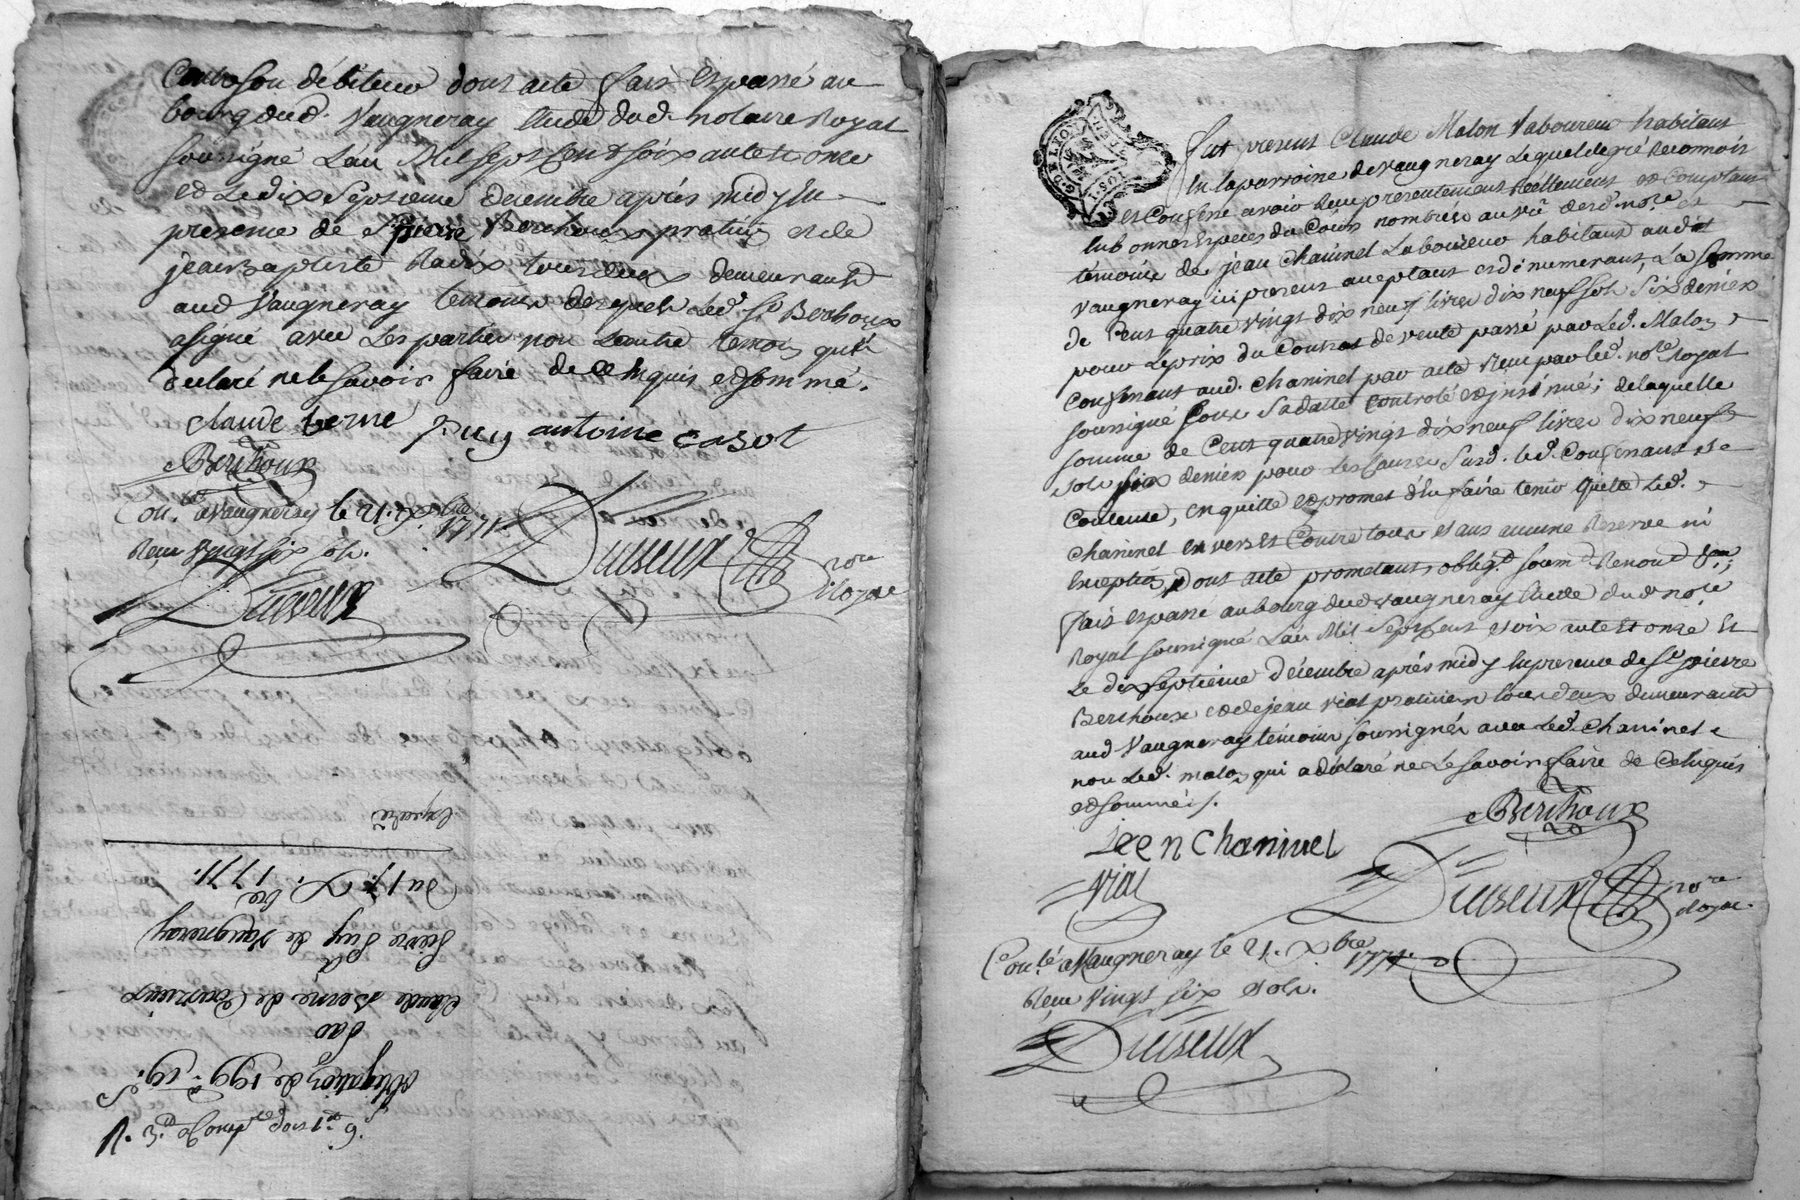 Contre son débiteur dont acte fait et passé au
bourg dud. Vaugneray Etude dud. notaire Royal
soussigné L'an Mil sept Cent soixante et onze
et Le dix septieme decembre après midy En
presence de Sr pierre Berthoux praticien et de
jean baptiste tous deux demeurants
aud Vaugneray temoins desquels Led. Sr Berthoux
a signé avec Les parties non Lautre temoin qui a
declaré ne le savoir faire de ce Enquis et sommé.
claude berne Puy antoine casot
Berthoux
Con.lé a Vaugneray le 21. Xbre 1771
Reçu vingt six sols.
Duiseux nore Royal
Duiseux
Expedié
Du 17. Xbre 1771.
Sieur Puy de Vaugneray
a
Claude Berne de
par
Obligation de 199.# 19.s
fut present Claude Maton Laboureur habitant
En la parroisse de Vaugneray Lequel de gré Reconnoit
et Confesse avoir Reçu presentement Reellement et Comptant
En bonnes Especes du Cours nombrées au vû dud. nore et
témoins de jean Chaninel Laboureur habitant audit
Vaugneray ici present acceptant et dénumerant, La somme
de Cent quatre vingt dix neuf livres dix neuf sols six deniers
pour Le prix du Contrat de vente passé par Led. Maton
Confessant aud. Chaninel par acte Reçu par led. nore Royal
soussigné sous sa datte Controlé et insinué; de laquelle
somme de Cent quatre vingt dix neuf livres dix neuf
sols six deniers pour Les Causes susd. led. Confessant se
Contente, En quitte et promet d'En faire tenir quitte Led.
Chaninel Envers et Contre tous sans aucune Reserve ni
Exception, Dont acte promettant, oblig.t soum.t Renonc.t &a;
fait et passé au bourg dud Vaugneray Etude dud nore
Royal soussigné L'an Mil Sept Cent soixante et onze Et
Le dix septieme décembre après midy En presence de Sr pierre
Berthoux et de jean vial praticiens tous deux demeurants
aud Vaugneray témoins soussignés avec Led. Chaninel
non Led. maton qui a déclaré ne Le savoir faire de Ce Enquis
et sommé./.
Berthoux
Jeen Chaninel
Vial
Duiseux nore Royal.
Con.lé a Vaugneray le 21. Xbre 1771
Reçu Vingt six sols.
Duiseux